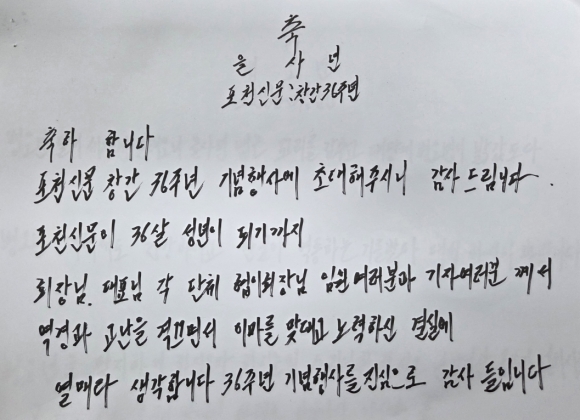 축
을 사 년
포천신문 : 창간 36주년
축하 합니다
포천신문 창간 36주년 기념행사에 초대해주시니 감사 드립니다.
포천신문이 36살 성년이 되기까지
회장님. 대표님 각 단체 협이회장님 임원여러분과 기자여러분 께서
역경과 고난을 격으면서 이마를 맞대고 노력하신 결실에
열매다 생각합니다 36주년 기념행사를 진심으로 감사 들입니다